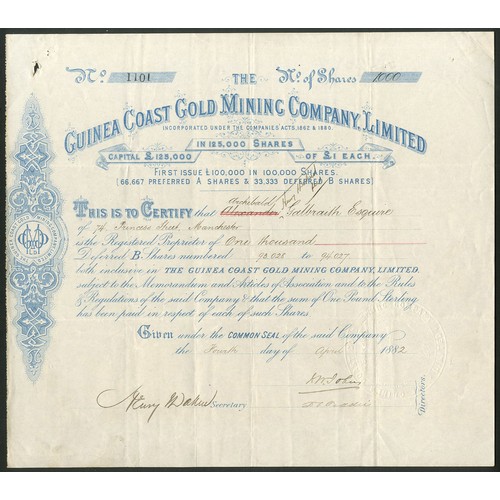 No. 1101 THE No. of Shares 1000
GUINEA COAST GOLD MINING COMPANY, LIMITED
INCORPORATED UNDER THE COMPANIES ACTS, 1862 & 1880.
IN 125,000 SHARES
CAPITAL £125,000 OF £1 EACH.
FIRST ISSUE £100,000 IN 100,000 SHARES.
(66,667 PREFERRED A SHARES & 33,333 DEFERRED B SHARES)
Archibald
THIS IS TO CERTIFY that Alexander Galbraith Esquire
of 74 Princess Street, Manchester
is the Registered Proprietor of One thousand
Deferred B. Shares numbered 95,028 to 96,027
both inclusive in THE GUINEA COAST GOLD MINING COMPANY, LIMITED,
subject to the Memorandum and Articles of Association and to the Rules
& Regulations of the said Company & that the sum of One Pound Sterling
has been paid in respect of each of such Shares.
Given under the COMMON SEAL of the said Company
the Fourth day of April 1882
Henry Secretary
Directors.